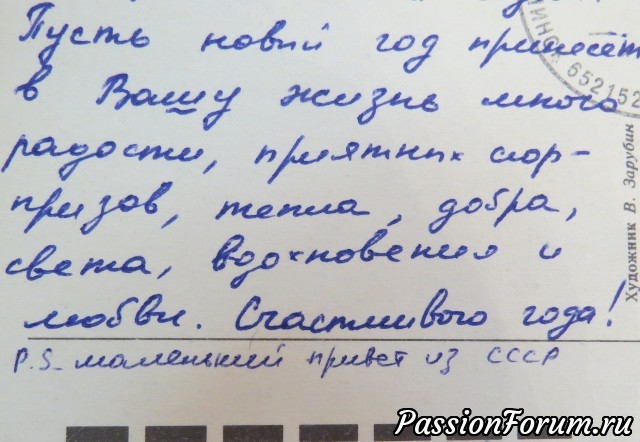 Пусть новый год принесёт
в Вашу жизнь много
радости, приятных сюр-
призов, тепла, добра,
света, вдохновения и
любви. Счастливого года!
P.S. маленький привет из СССР
652152
Художник В. Зарубин
PassionForum.ru